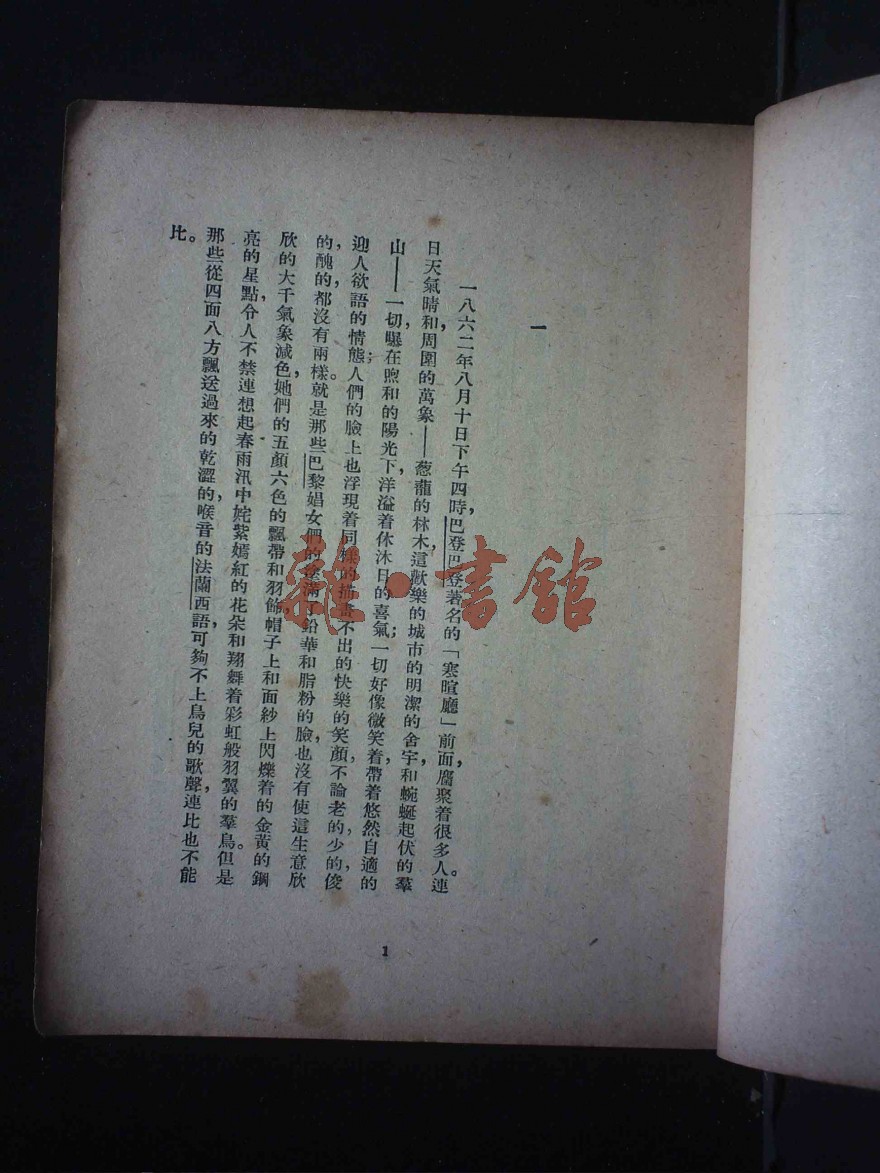 一
一八六二年八月十日下午四時，巴登巴登著名的「寒暄廳」前面，麕聚着很多人。連
日天氣晴和，周圍的萬象——葱蘢的林木，這歡樂的城市的明潔的舍宇，和蜿蜒起伏的羣
山——一切，曝在煦和的陽光下，洋溢着休沐日的喜氣；一切好像微笑着，帶着悠然自適的，
迎人欲語的情態；人們的臉上也浮現着同樣的描畫不出的快樂的笑顏，不論老的，少的，俊
的，醜的，都沒有兩樣。就是那些巴黎娼女們的塗滿了鉛華和脂粉的臉，也沒有使這生意欣
欣的大千氣象減色，她們的五顏六色的飄帶和羽飾，帽子上和面紗上閃爍着的金黃的鋼
亮的星點，令人不禁連想起春雨汛中姹紫嫣紅的花朵和翔舞着彩虹般羽翼的羣鳥。但是
那些從四面八方飄送過來的乾澀的，喉音的法蘭西語，可夠不上鳥兒的歌聲，連比也不能
比。
1
雜·書館